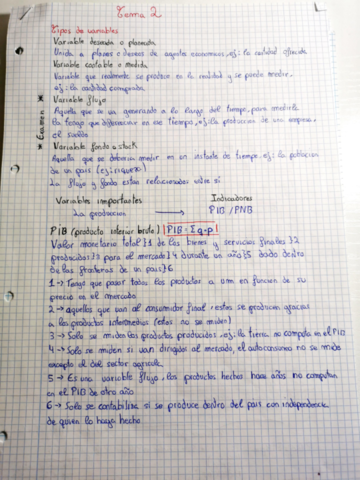 Tema 2
Tipos de variables
Variable deseada o planeada
Unida a planes o deseos de agentes economicos, ej: la cantidad ofrecida
Variable contable o medida
Variable que realmente se produce en la realidad y se puede medir,
ej: la cantidad comprada
* Variable flujo
Aquella que se va generando a lo largo del tiempo, para medirla
la tengo que diferenciar en ese tiempo, ej: la produccion de una empresa,
el sueldo
Examen
* Variable fondo o stock
Aquella que se debería medir en un instante de tiempo. ej: la poblacion
de un pais (ej: riqueza)
La flujo y fondo estan relacionadas entre si
Variables importantes Indicadores
La produccion → PIB / PNB
PIB (producto interior bruto) PIB = Σq·p
Valor monetario total }1 de los bienes y servicios finales }2
producidos }3 para el mercado }4 durante un año }5 dado dentro
de las fronteras de un pais }6
1 → Tengo que pasar todos los productos a um en funcion de su
precio en el mercado
2 → aquellos que van al consumidor final, estos se producen gracias
a los productos intermedios (estos no se miden)
3 → Solo se miden los productos producidos, ej: la tierra no computa en el PIB
4 → Solo se miden si van dirigidos al mercado, el autoconsumo no se mide
excepto el del sector agricola
5 → Es una variable flujo, los productos hechos hace años no computan
en el PIB de otro año
6 → Solo se contabiliza si se produce dentro del pais con independencia
de quien lo haya hecho